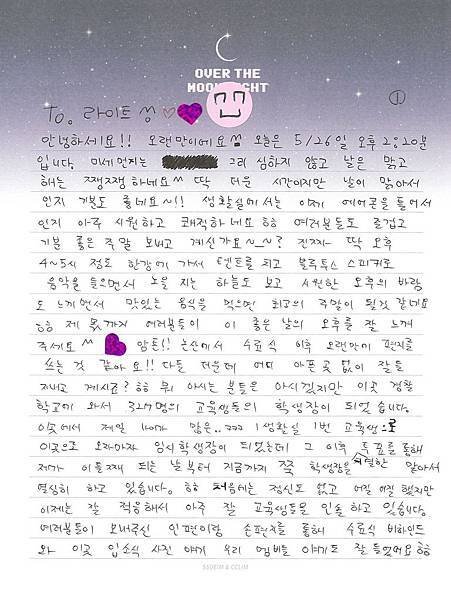 OVER THE
MOONLIGHT
①
To. 라이트 ^^
안녕하세요!! 오랜만이에요^^ 오늘은 5/26일 오후 2:20분
입니다. 미세먼지는 그리 심하지 않고 날은 맑고
해는 쨍쨍하네요^^ 딱 더운 시간이지만 날이 맑아서
인지 기분도 좋네요~!! 생활실에서는 이제 에어콘을 틀어서
인지 아주 시원하고 쾌적하네요 ㅎㅎ 여러분들도 즐겁고
기분 좋은 주말 보내고 계신가요~~? 진짜 딱 오후
4~5시 정도 한강에 가서 텐트를 치고 블루투스 스피커로
음악을 들으면서 노을 지는 하늘도 보고 시원한 오후의 바람
도 느끼면서 맛있는 음식을 먹으면 최고의 주말이 될것 같네요
ㅎㅎ 제 몫까지 여러분들이 이 좋은 날의 오후를 잘 느껴
주세요^^ 암튼!! 논산에서 수료식 이후 오랜만에 편지를
쓰는 것 같아요!! 다들 더운데 어디 아픈곳 없이 잘들
지내고 계시죠? ㅎㅎ 뭐 아시는 분들은 아시겠지만 이곳 경찰
학교에 와서 327명의 교육생들의 학생장이 되었습니다.
이곳에서 제일 나이가 많은.. ㅋㅋㅋ 1생활실 1번 교육생
이곳으로 오자마자 임시학생장이 되었는데 그 이후 투표를 통해
제가 이틀째 되는 날부터 지금까지 쭉 학생장을 맡아서
열심히 하고 있습니다. ㅎㅎ 처음에는 정신도 없고 어질어질 했지만
이제는 잘 적응해서 아주 잘 교육생들을 인솔 하고 있습니다.
여러분들이 보내주신 인편이랑 손편지를 통해 수료식 비하인드
와 이곳 입소식 사진 얘기 우리 멤버들 이야기도 잘 들었어요 ㅎㅎ
SSOEIM & CCLIM